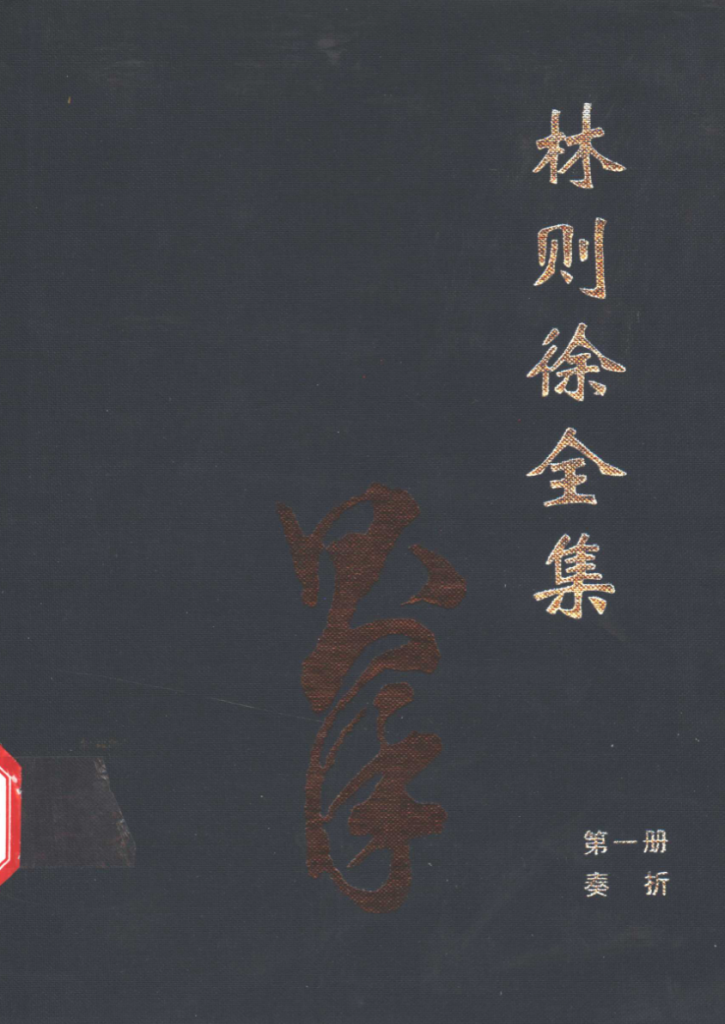 林则徐全集
第一册
奏折